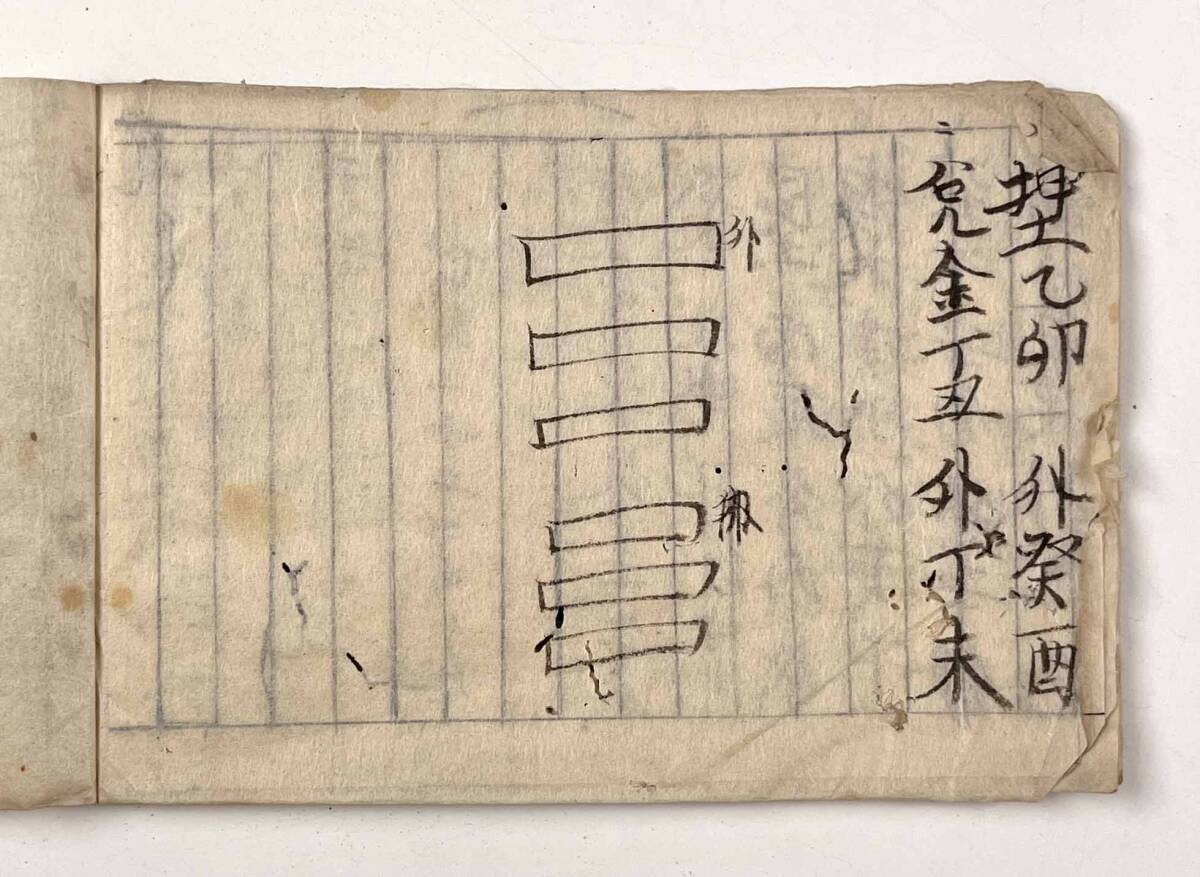 乙卯 外癸酉
二 兌金丁丑 外丁未
外